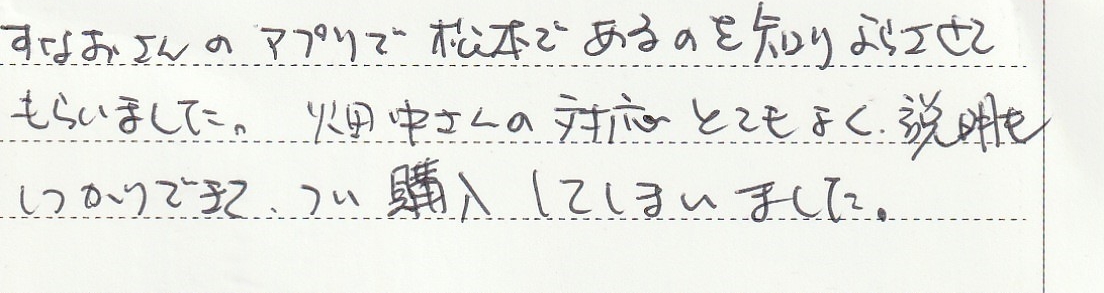 すなおさんのアプリで松本であるのを知りよらさせて
もらいました。畑中さんの対応とてもよく、説明も
しっかりできて、つい購入してしまいました。